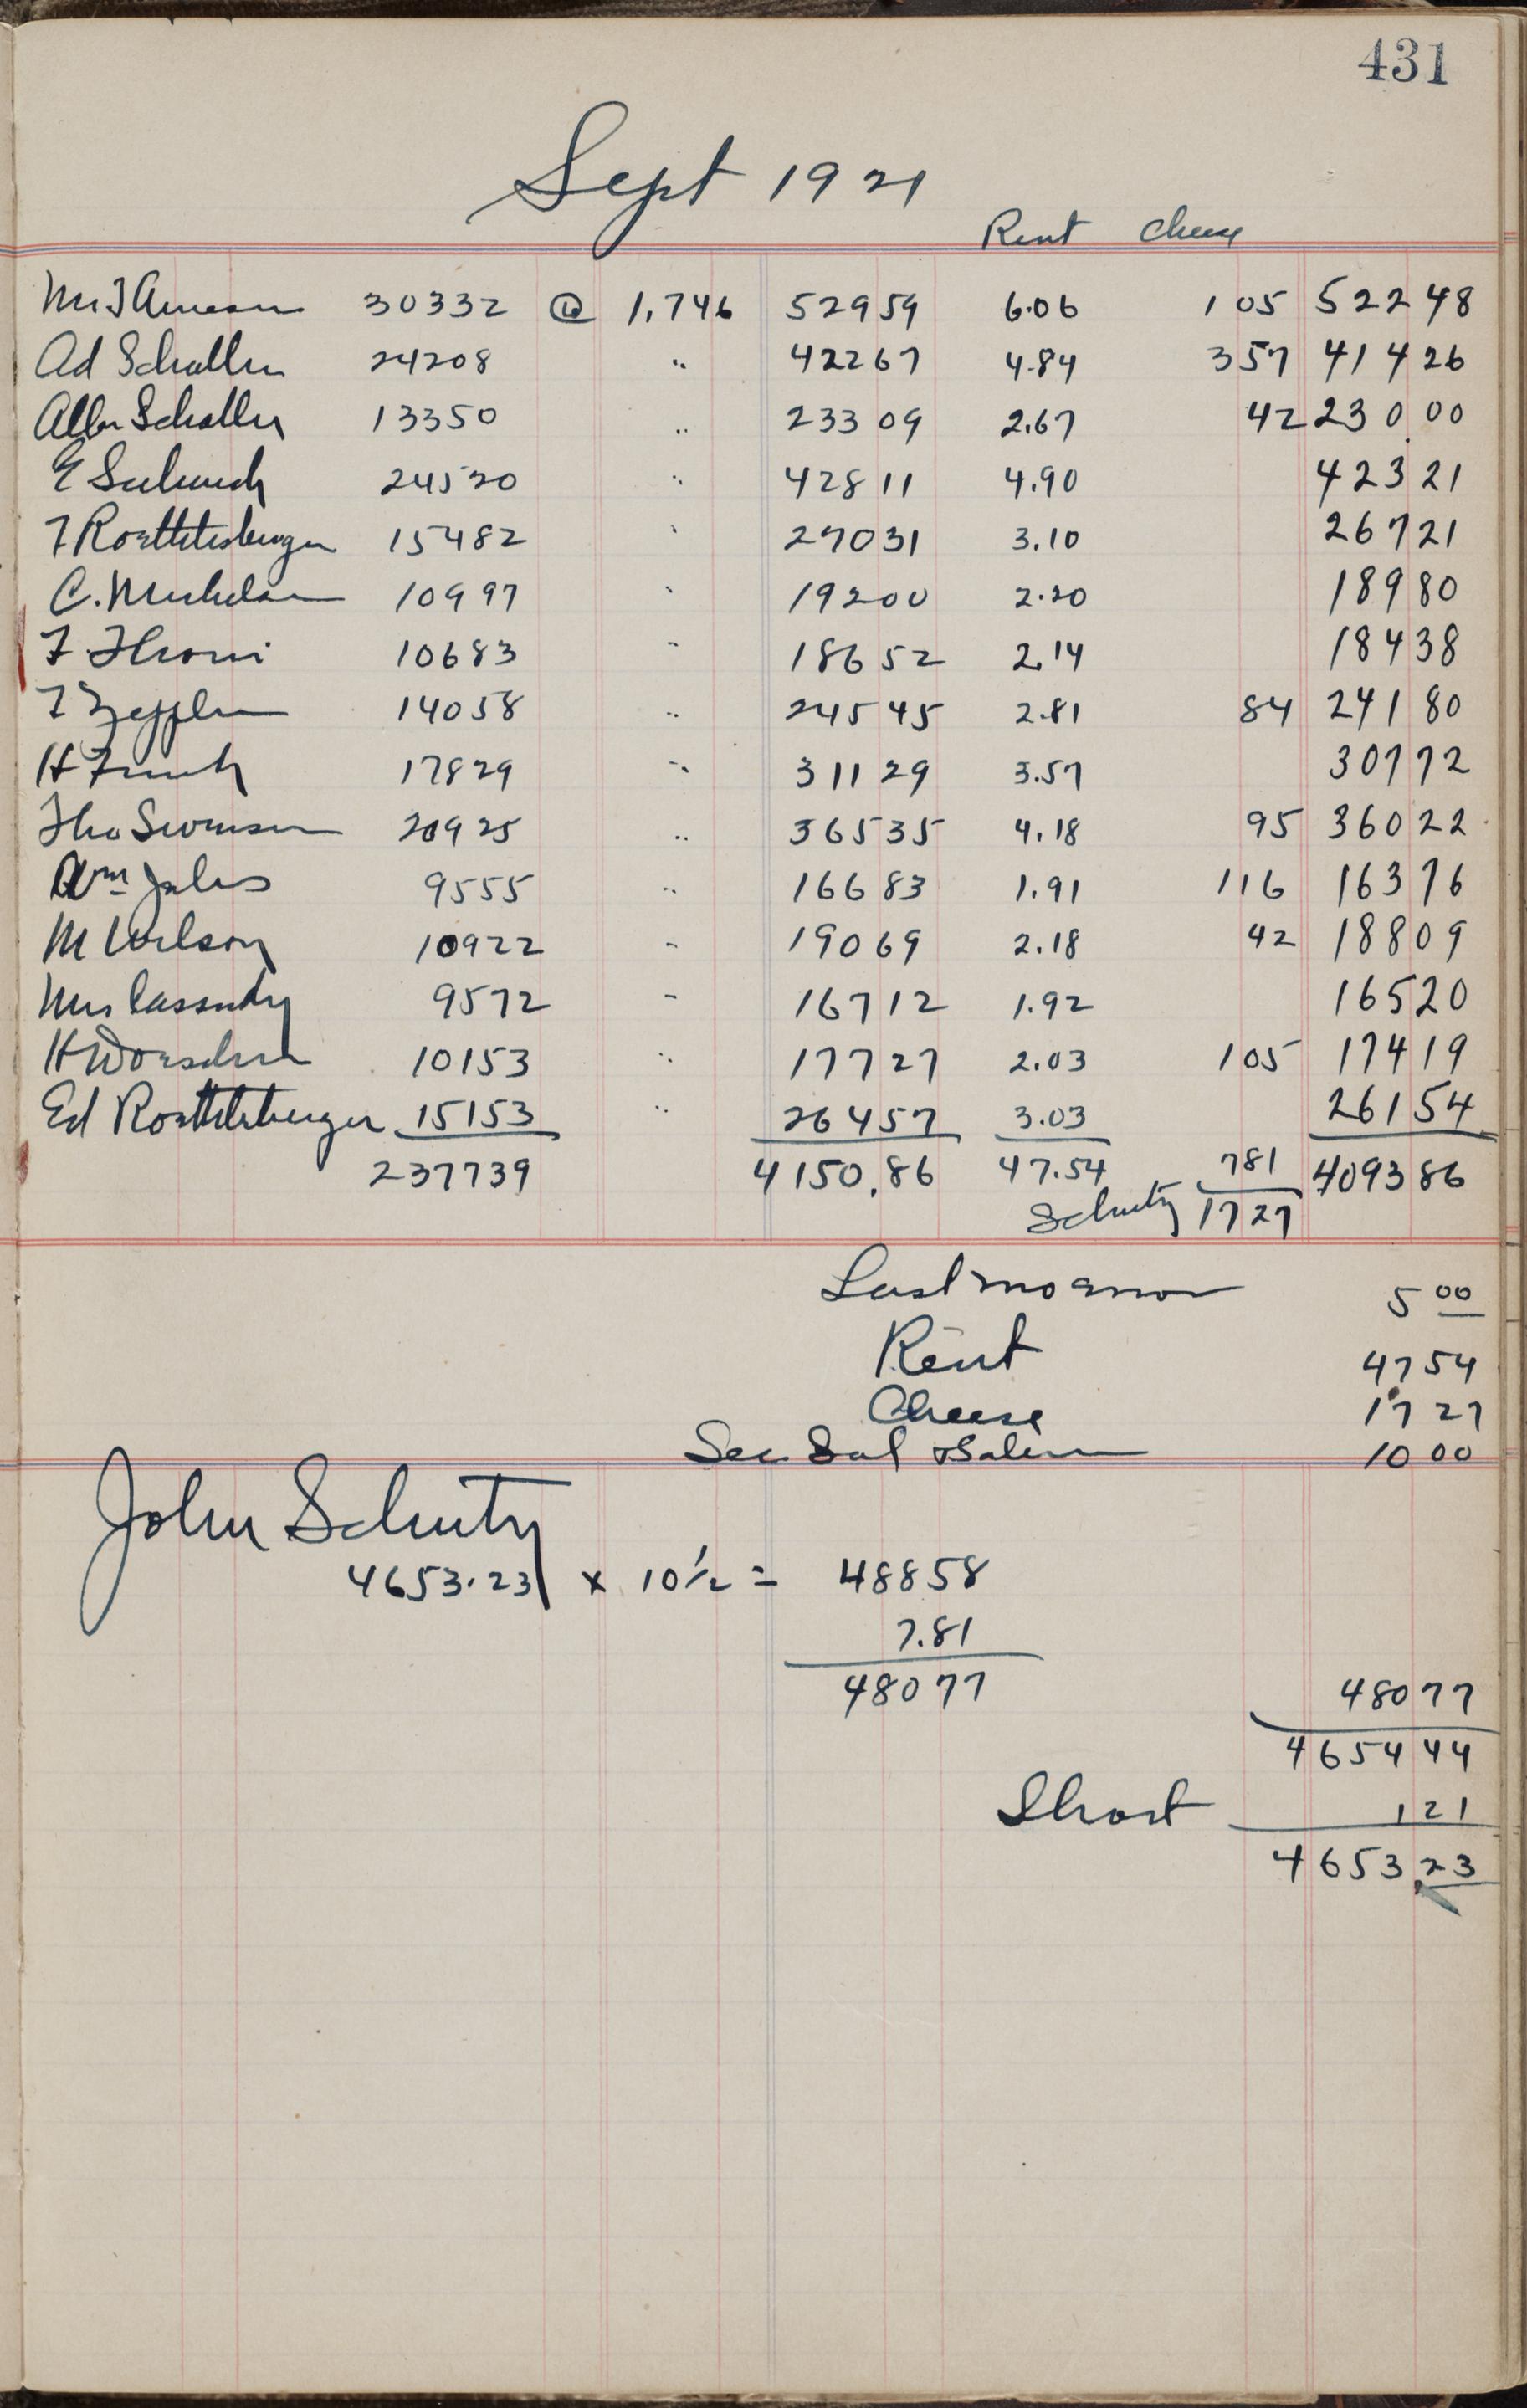 431
Sept 1921
Rent Cheese
Mrs J Arneson 30332 @ 1.746 52959 6.06 105 52248
Ad Schaller 24208 " 42267 4.84 357 41426
Alber Schaller 13350 " 23309 2.67 42 230.00
E 24520 " 42811 4.90 42321
F Roethlisberger 15482 " 27031 3.10 26721
C. Michelson 10997 " 19200 2.20 18980
F. Thoni 10683 " 18652 2.14 18438
F Zepplin 14058 " 24545 2.81 84 24180
H Frunk 17829 " 31129 3.57 30772
Theo Swenson 20925 " 36535 4.18 95 36022
Wm Jales 9555 " 16683 1.91 116 16376
M Wilson 10922 " 19069 2.18 42 18809
Mrs Cassady 9572 " 16712 1.92 16520
H 10153 " 17727 2.03 105 17419
Ed Roethlisberger 15153 " 26457 3.03 26154
237739 4150.86 47.54 781 409386
Schutz 1727
Last mo error 5 00
Rent 4754
Cheese 1727
Sec Sal 1000
John Schutz
4653.23 x 10 1/2 = 48858
7.81
48077 48077
465444
Short 121
465323